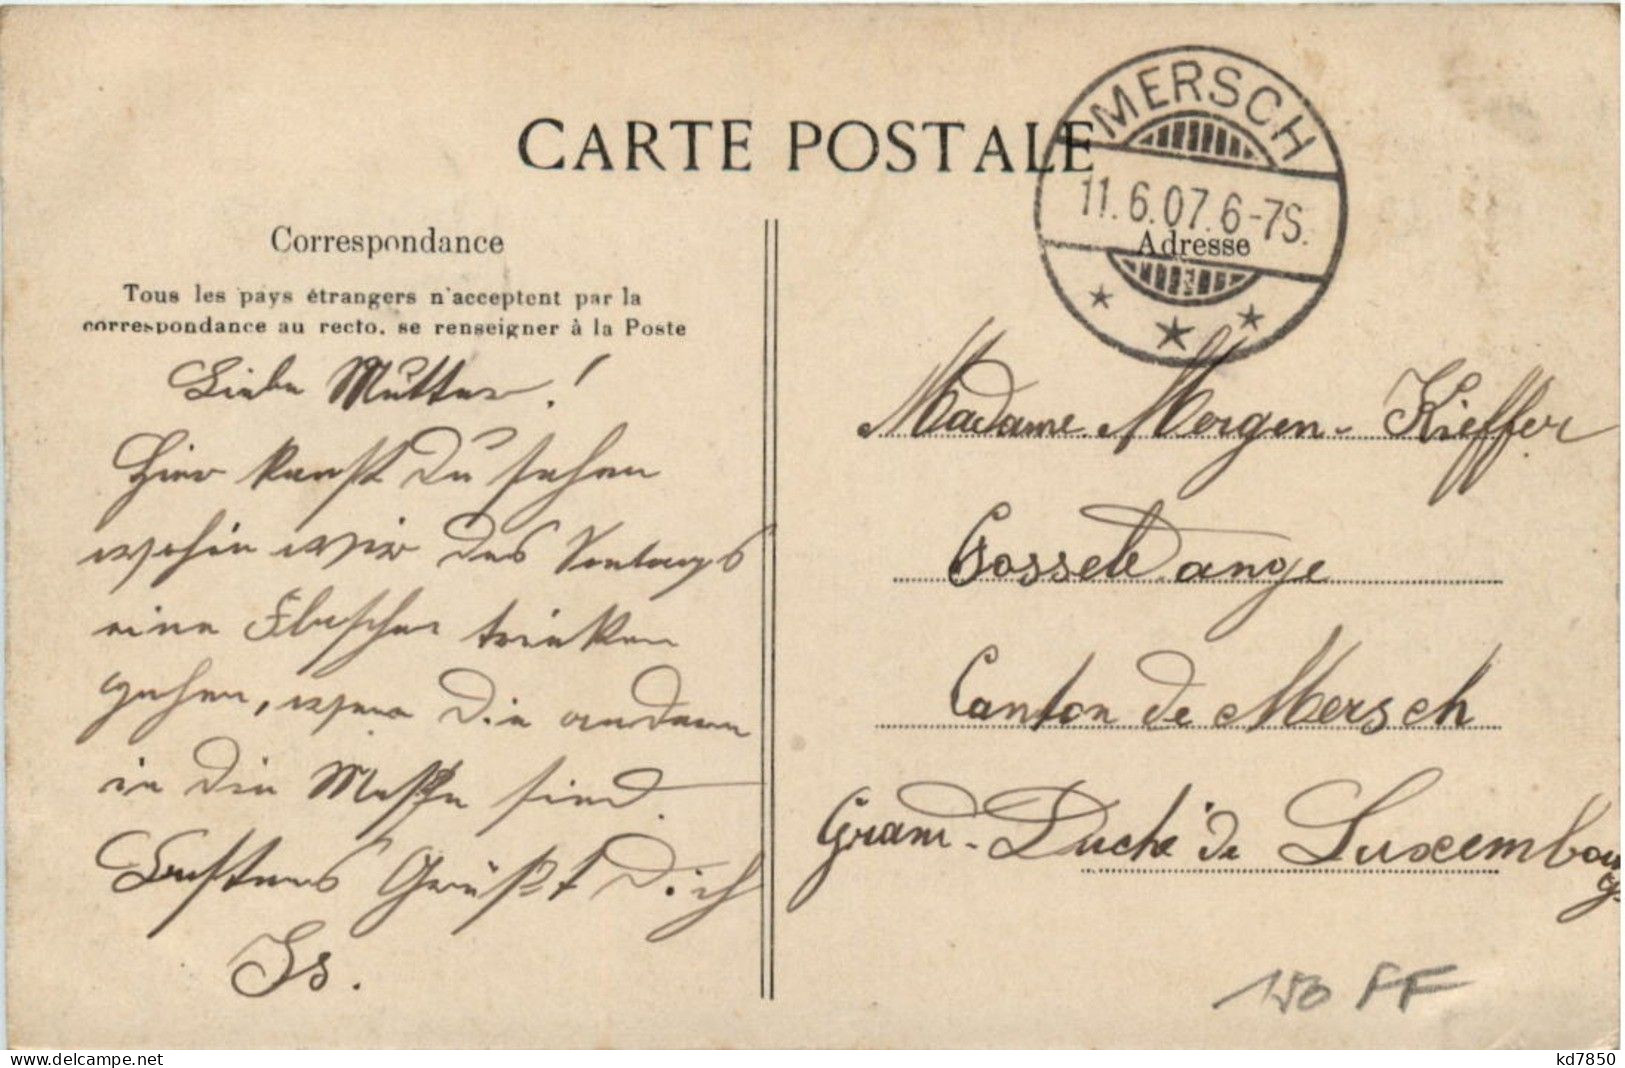 CARTE POSTALE
MERSCH
11.6.07.6-7S.
Correspondance
Adresse
Tous les pays étrangers n'acceptent par la
correspondance au recto, se renseigner à la Poste
Liebe Mutter!
Hier kanst Du sehen
wohin wir des Sontags
eine Flasche trinken
gehen, wen die andern
in die Messe sind.
Bestens Grüßt Dich
Is.
Madame Morgen-Kieffer
Canton de Mersch
Grand-Duché de Luxembourg
150 FF
delcampe.net
kd7850